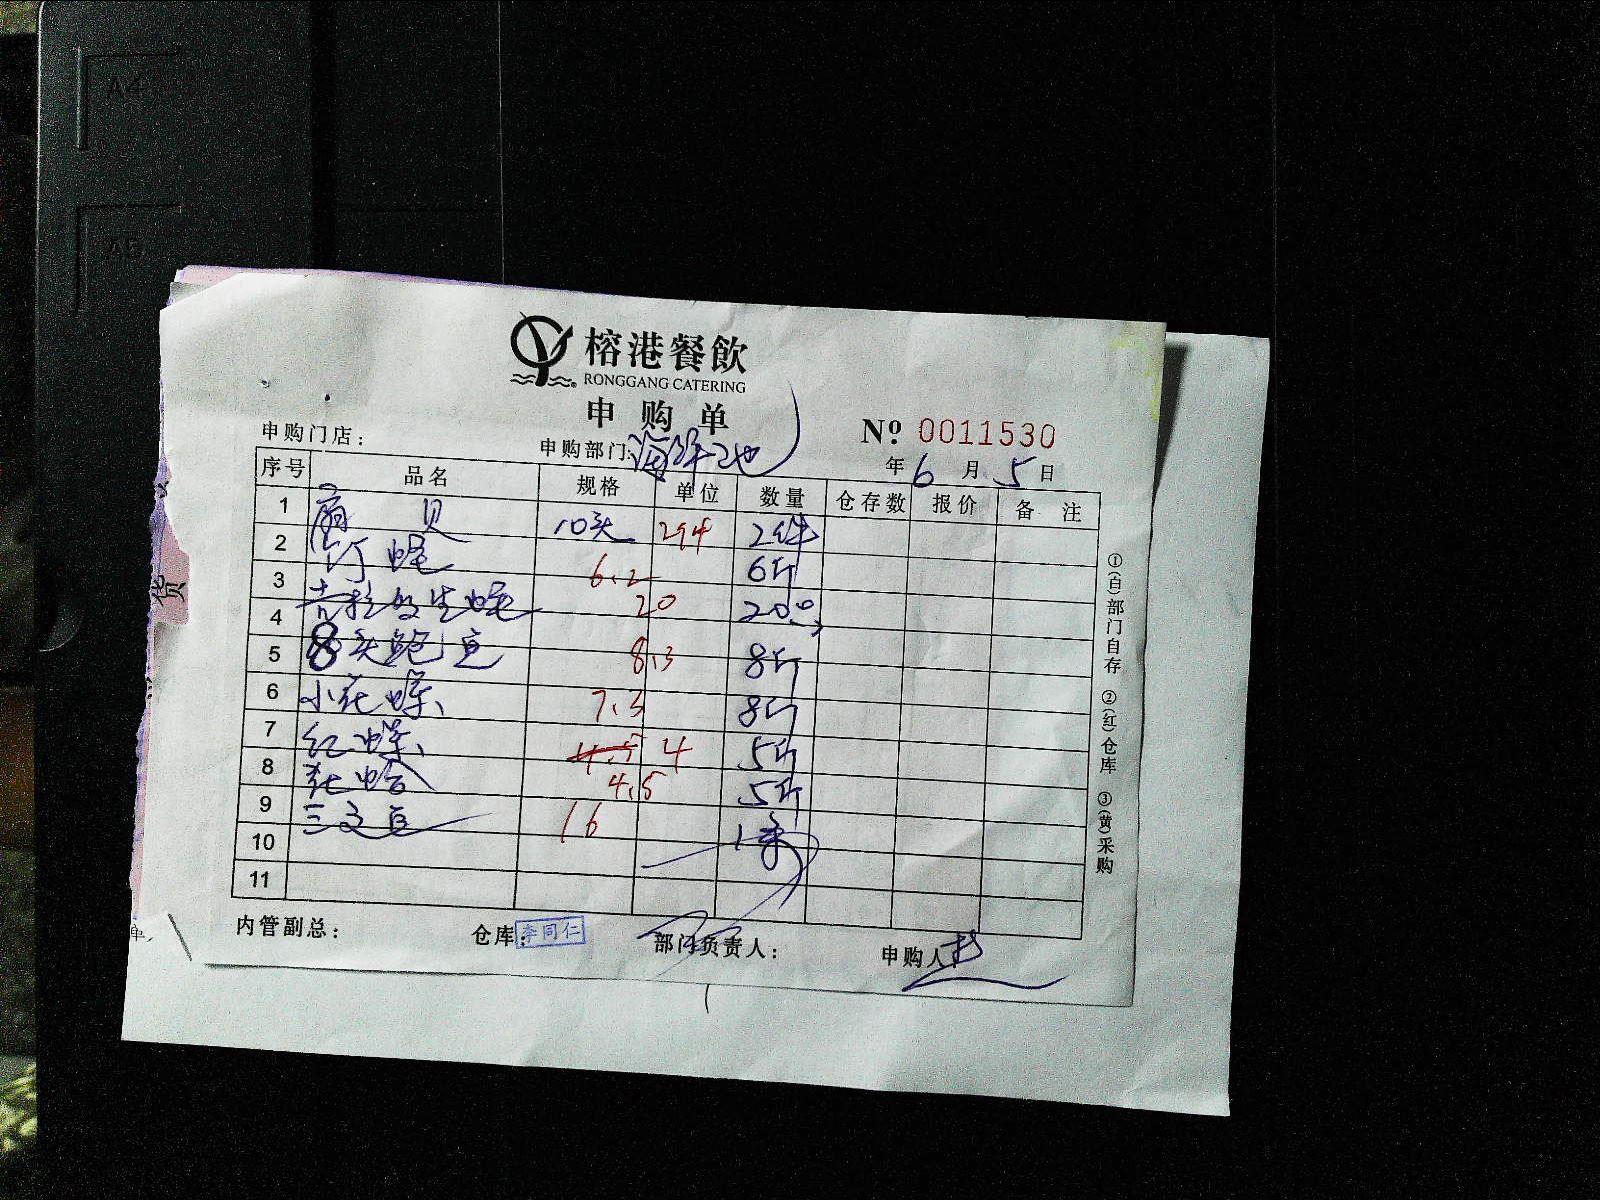 A4
A5
榕港餐飲
RONGGANG CATERING
申购单
№ 0011530
申购门店： 申购部门：海鲜池 年 6 月 5 日
序号 品名 规格 单位 数量 仓存数 报价 备注
1 扇贝 10头 2件 2件
2 6.2 6斤
3 20 20个
4 8头鲍鱼 8.3 8斤
5 小花螺 7.3 8斤
6 红螺 4.5 4 5斤
7 花蛤 4.5 5斤
8 三文鱼 16 1条
9
10
11
①(白)部门自存 ②(红)仓库 ③(黄)采购
内管副总： 仓库：李同仁 部门负责人： 申购人：
货
单